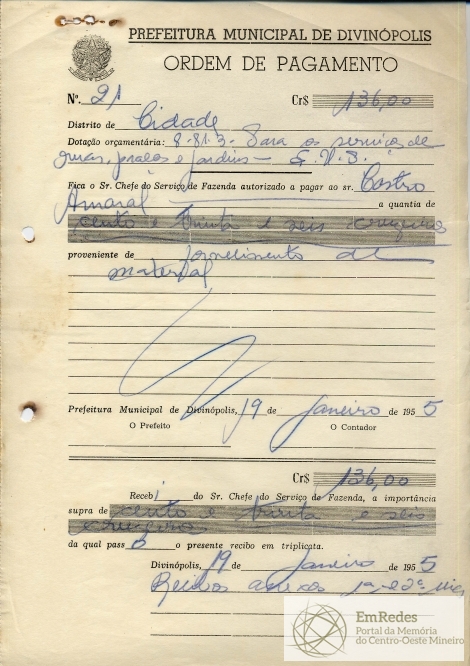 PREFEITURA MUNICIPAL DE DIVINÓPOLIS
ORDEM DE PAGAMENTO
N.º 21 Cr$ 136,00
Distrito de Cidade
Dotação orçamentária: 8-81-3- Para os serviços de
ruas, praças e jardins —
Fica o Sr. Chefe do Serviço de Fazenda autorizado a pagar ao sr. Castro
Amaral a quantia de
cento e trinta e seis cruzeiros
proveniente de fornecimento de
material
Prefeitura Municipal de Divinópolis, 19 de Janeiro de 1955
O Prefeito O Contador
Cr$ 136,00
Recebi do Sr. Chefe do Serviço de Fazenda, a importância
supra de cento e trinta e seis
cruzeiros
da qual pass o o presente recibo em triplicata.
Divinópolis, 19 de Janeiro de 1955
Recibos anexos 1ª e 2ª vias
EmRedes
Portal da Memória
do Centro-Oeste Mineiro